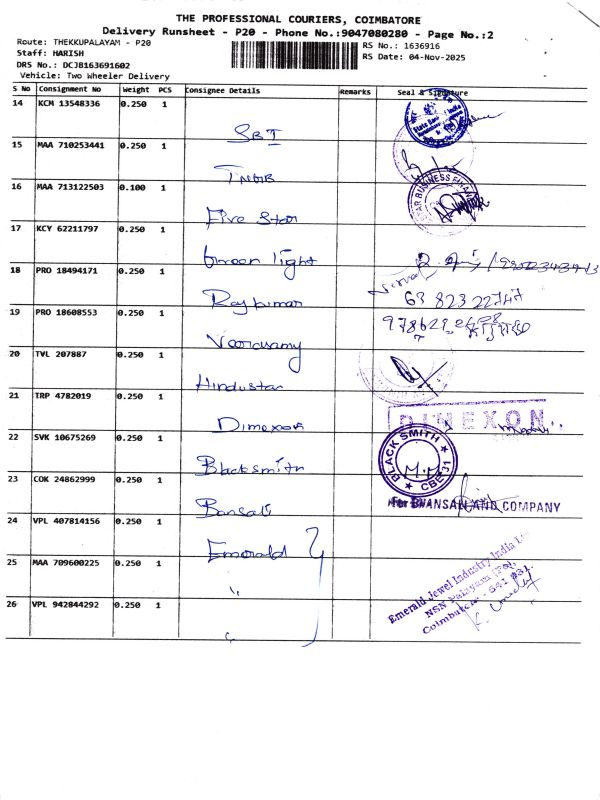 THE PROFESSIONAL COURIERS, COIMBATORE
Delivery Runsheet - P20 - Phone No.:9047080280 - Page No.:2
Route: THEKKUPALAYAM - P20
Staff: HARISH
DRS No.: DCJB163691602
Vehicle: Two Wheeler Delivery
RS No.: 1636916
RS Date: 04-Nov-2025
S No Consignment No Weight PCS Consignee Details Remarks Seal & Signature
14 KCM 13548336 0.250 1 SBI
15 MAA 710253441 0.250 1 TNGB
16 MAA 713122503 0.100 1 Five Star
STAR BUSINESS FINAN
17 KCY 62211797 0.250 1 Green light
18 PRO 18494171 0.250 1 Rajkumar 63 823 22747
19 PRO 18608553 0.250 1 Veerasamy
20 TVL 207887 0.250 1 Hindustan
21 TRP 4782019 0.250 1 Dimexon DIMEXON
22 SVK 10675269 0.250 1 Blacksmith
BLACK SMITH
CBE-31
23 COK 24862999 0.250 1 Bansali
For BHANSALI AND COMPANY
24 VPL 407814156 0.250 1 Emerald
25 MAA 709600225 0.250 1 "
26 VPL 942844292 0.250 1 "
Emerald Jewel Industry India L
NSN Palayam (Po),
Coimbatore - 641 031.